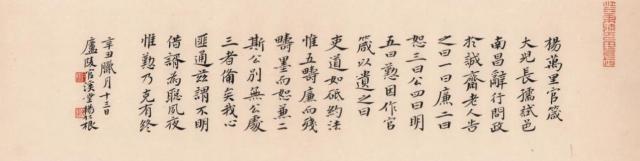 楊萬里官箴
大兒長孺試邑
南昌辭行問政
於誠齋老人告
之曰一曰廉二曰
恕三曰公四曰明
五曰勤因作官
箴以遺之曰
吏道如砥約法
惟五疇廉而殘
疇墨而恕兼二
斯公別無公處
三者備矣我心
匪通茲謂不明
借為聰夙夜
惟勤乃克有終
辛丑臘月十三日
廬陵官溪堂楊根